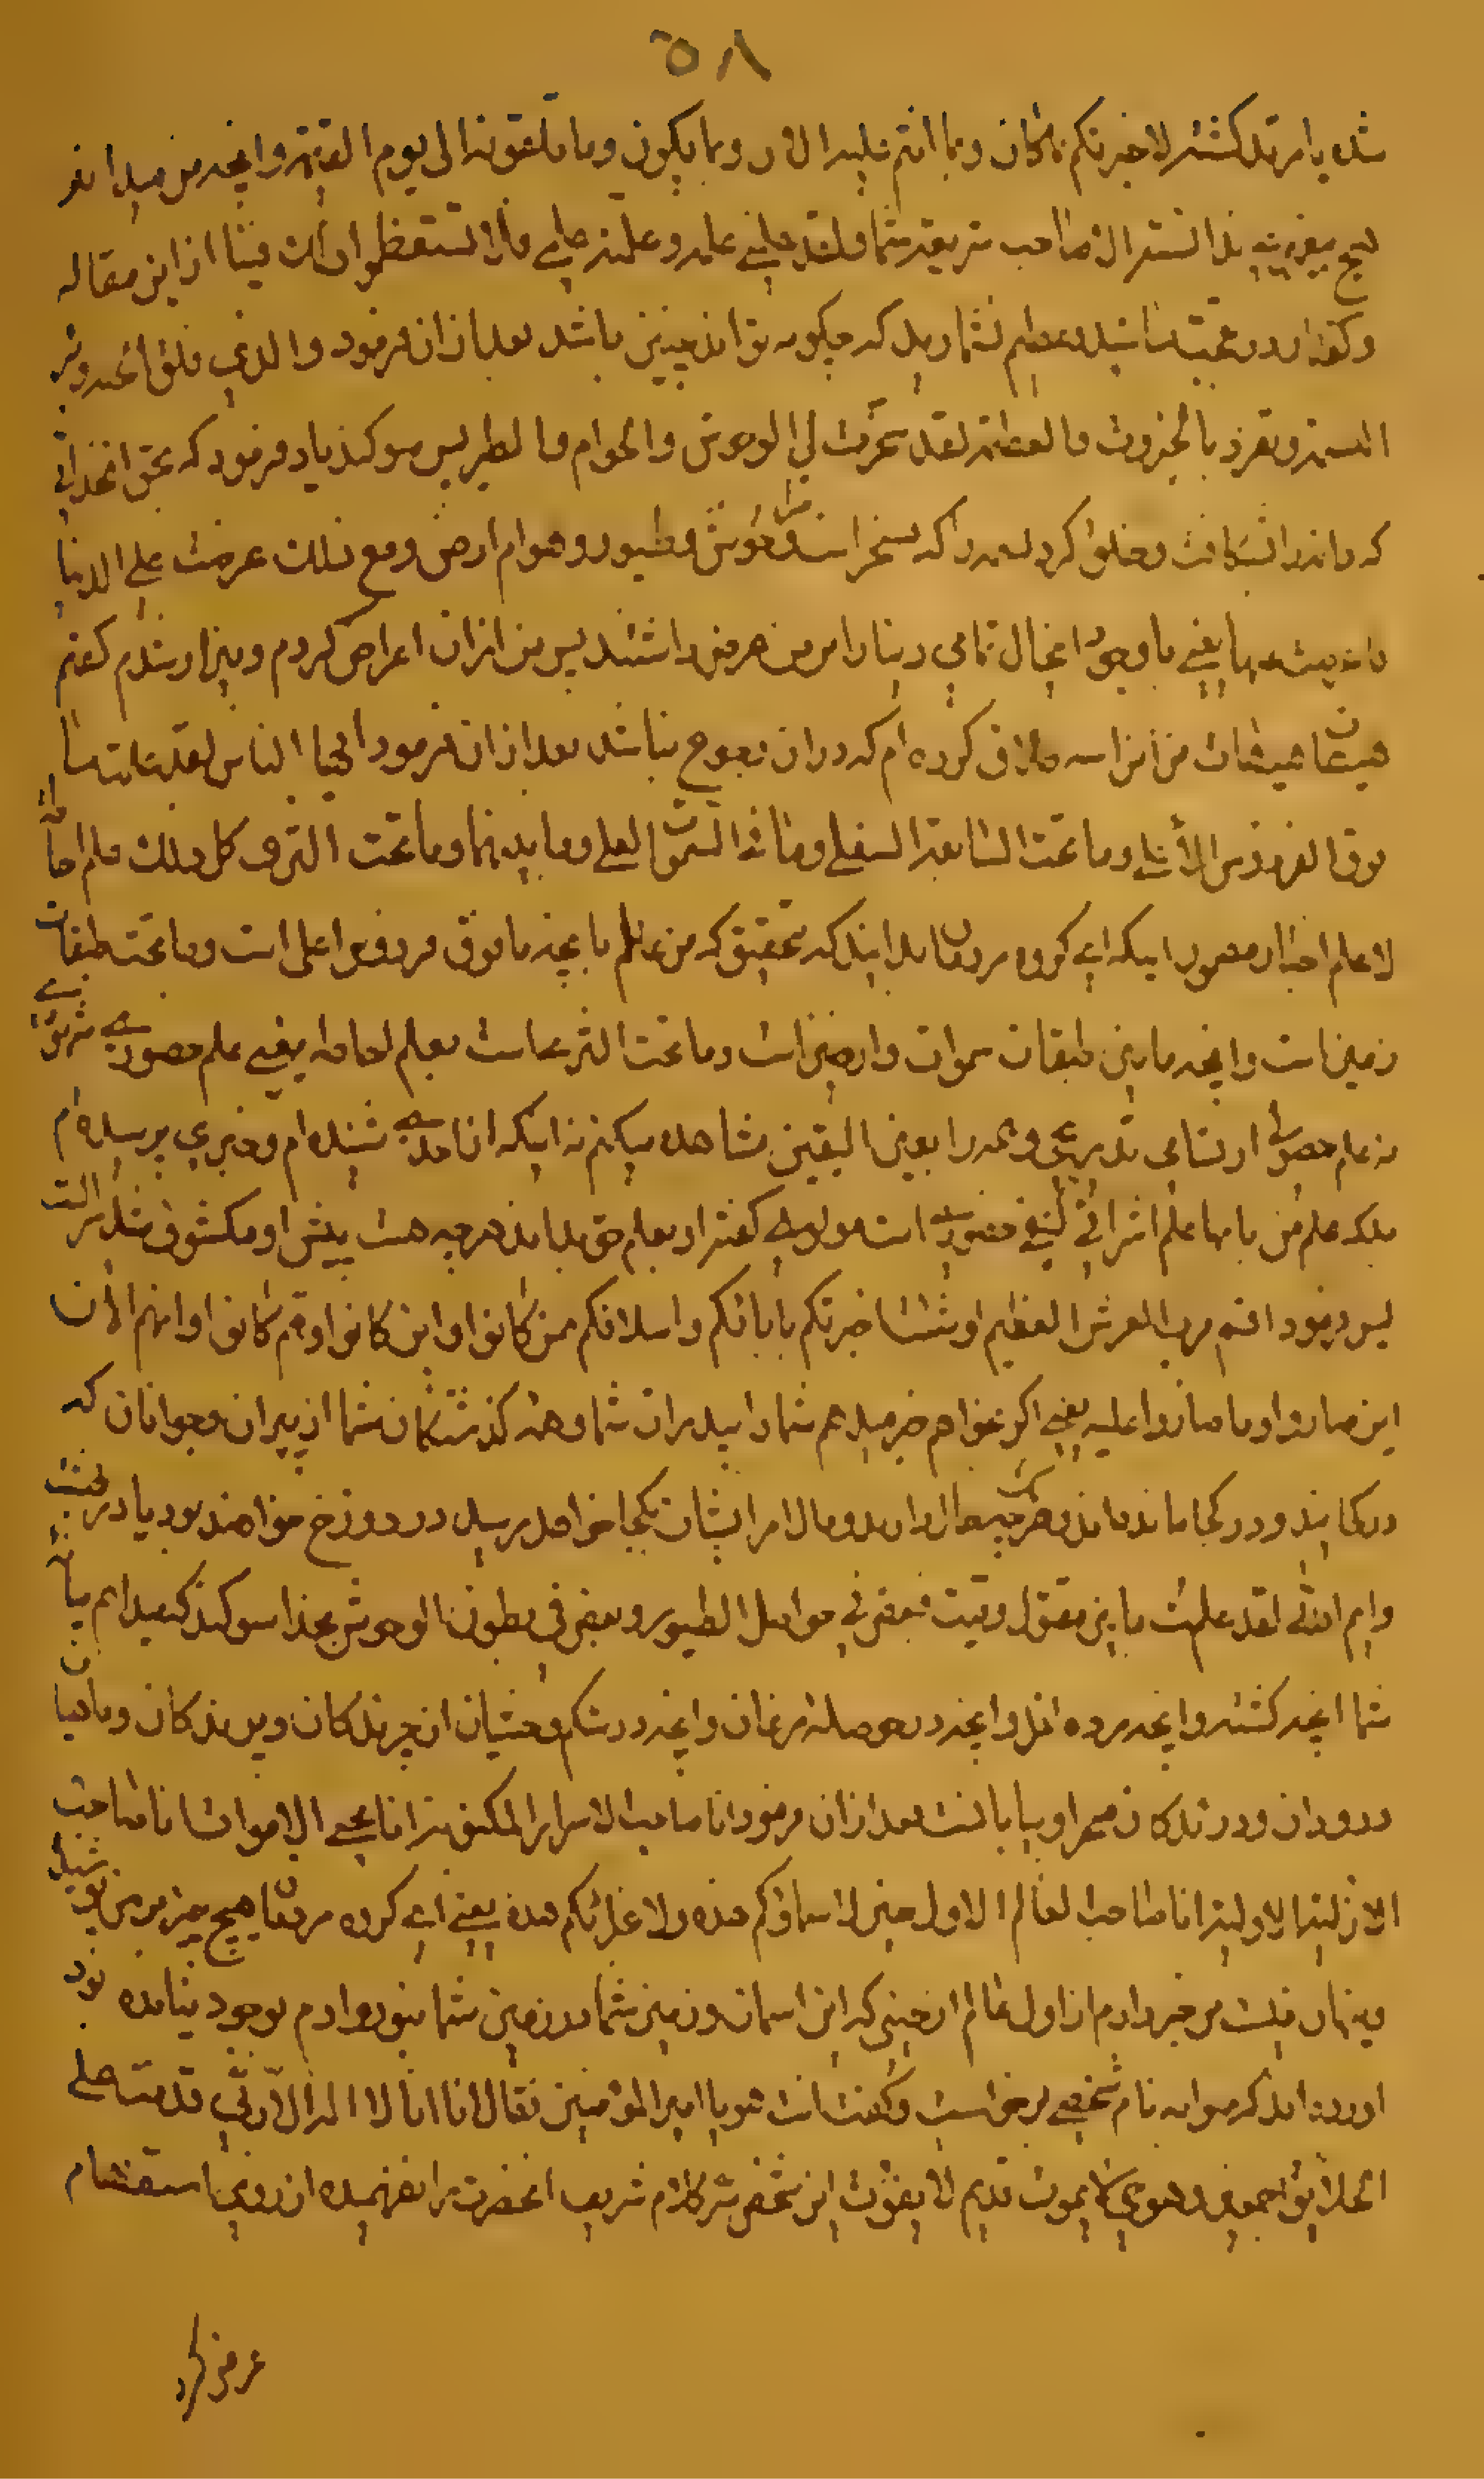 ٥٨
شده یا مرتد کشته لاخبرتکم بما کان وبما انتم علیه الان وبما یکون وما تلقونه الی یوم القیمة وانچه من میدانم
هیچ پیغمبری ندانسته الا صاحب شریعت شما ولقد علمنی علمه وعلمته علمی فلا تستعظموا ذلک فینا از این مقاله
وگفتار در تعجب مباشید وعظیم نشمارید که چگونه تواند چنین باشد بعد از ان فرمود والذی فلق الحبة وبرء
النسمة وتفرد بالجبروت والعظمة لقد سخرت لی الوحوش والهوام والطیر پس سوگند یاد فرمود که بحق انخدائی
که دانه را شکافت وخلق کرد بنده را که مسخر است مرا وحوش وطیور وهوام ارض ومع ذلک عرضت علی الدنیا
فاعرضت عنها یعنی با وجود انحال تمامی دنیا را بر من عرض داشتند پس من از ان اعراض کردم وبیزار شدم گفتم
هیهات هیهات من انرا سه طلاق کرده ام که در ان رجوع نباشد بعد از ان فرمود ایها الناس لقد علمت ما
فوق الفردوس الاعلی وما تحت السابعة السفلی وما فی السموات العلی وما بینهما وما تحت الثری کل ذلک علم احاطة
لا علم اخبار مقصود اینکه ای گروه مردمان بدانید که بتحقیق که من عالم بانچه ما فوق فردوس اعلی است وما تحت طبقات
زمین است وانچه ما بین طبقات سموات وارضین است وما تحت الثری است بعلم احاطه یعنی علم حضوری
نه علم حصولی ارتسامی تدریجی وهمه را بعین الیقین مشاهده میکنم نه اینکه از احدی شنیده ام وخبری پرسیده ام
بلکه علم من بانها علم اشراقی کشفی حضوری است مولوی گفته او بعلم حق بداند هر چه هست پیش او مکشوف شد سر الست
پس فرمود اقسم برب العرش العظیم لو شئت اخبرتکم بابائکم واسلافکم ممن کانوا واین کانوا وفیم کانوا واین هم الان
این صاروا وما صاروا علیه یعنی اگر خواهم خبر میدهم شما را بپدران شما وهمه گذشتگان شما از پیران وجوانان که
در کجایند ودر کجا مانده اند وهر یک چه حال دارند ومال امر ایشان بکجا خواهد رسید در دوزخ خواهند بود یا در بهشت
وایم الله لقد علمت ما بین مقتول ومیت فبعض فی حواصل الطیور وبعض فی بطون الوحوش بخدا سوگند که میدانم
شما انچه کشته وانچه مرده اند وانچه در حوصله مرغان وانچه در شکم وحشیان از چرندگان وپرندگان وماهیان
در رودان ودرندگان صحرا وبیابانست بعد از ان فرمود انا صاحب الاسرار المکنونة انا محیی الاموات انا صاحب
الازلیة الاولیة انا صاحب العالم الاول حین لا سماؤکم هذه ولا غبرائکم هذه یعنی ای گروه مردمان هیچ چیز بر من پوشیده
وپنهان نیست من خبر دارم از اول عالم از حینی که این اسمان وزمین شما ودر زمین شما هنوز ادم بوجود نیامده بود
اورده اند که صواب نام شخصی برخواست وگفت انت هو یا امیر المؤمنین فقال انا انا لا اله الا الله ربی قدمته علی
الخلائق اجمعین وهو حی لا یموت قدیم لا یفوت این شخص سر کلام شریف انحضرت را نفهمیده از روی استفهام
عرض کرد